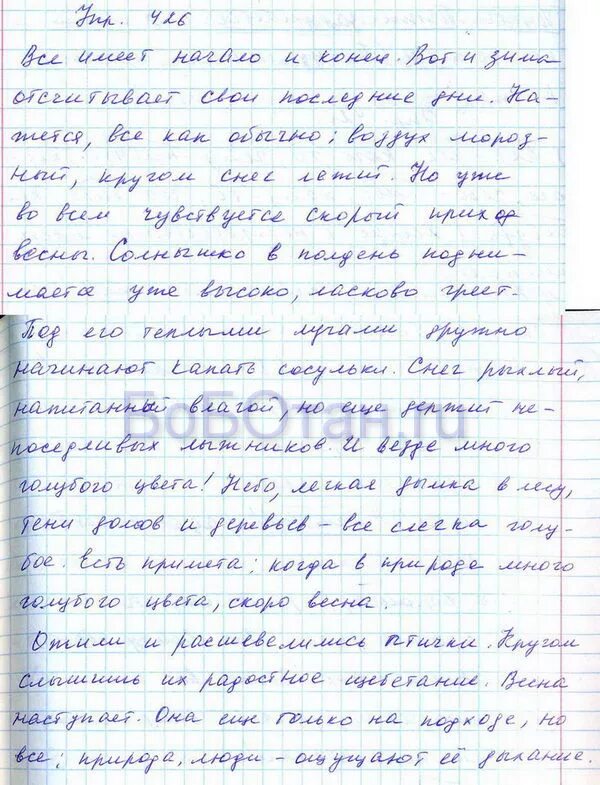 Упр. 426
Все имеет начало и конец. Вот и зима
отсчитывает свои последние дни. Ка-
жется, все как обычно: воздух мороз-
ный, кругом снег лежит. Но уже
во всем чувствуется скорый приход
весны. Солнышко в полдень подни-
мается уже высоко, ласково греет.
Под его теплыми лучами дружно
начинают капать сосульки. Снег рыхлый,
напитанный влагой, но еще держит не-
поседливых лыжников. И везде много
голубого цвета! Небо, легкая дымка в лесу,
тени домов и деревьев – все слегка голу-
бое. Есть примета: когда в природе много
голубого цвета, скоро весна.
Ожили и расшевелились птички. Кругом
слышишь их радостное щебетание. Весна
наступает. Она еще только на подходе, но
все: природа, люди – ощущают её дыхание.
БоБОтан.ru